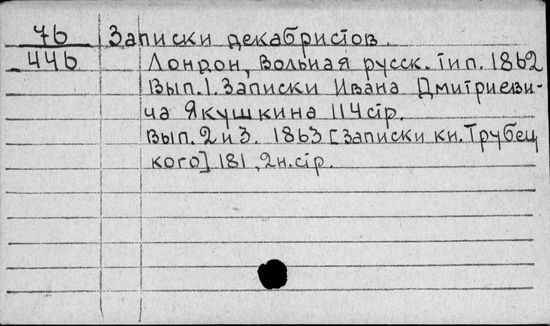 76 Записки декабристов.
446 Лондон, Вольная русск. тип. 1862
Вып. 1. Записки Ивана Дмитриеви-
ча Якушкина 114 стр.
Вып. 2 и 3. 1863 [Записки кн. Трубец
кого] 181, 2н. стр.